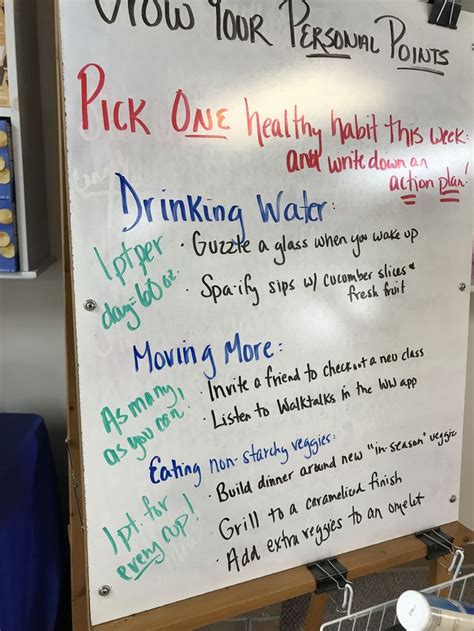 Grow Your Personal Points
Pick One healthy habit this week:
and write down an
action plan!
Drinking Water:
1 pt per
day = 60 oz.
· Guzzle a glass when you wake up
· Spa-ify sips w/ cucumber slices &
fresh fruit
Moving More:
As many
as you can!
· Invite a friend to check out a new class
· Listen to Walktalks in the WW app
Eating non-starchy veggies:
1 pt. for
every cup!
· Build dinner around new "in-season" veggie
· Grill to a caramelized finish
· Add extra veggies to an omelet